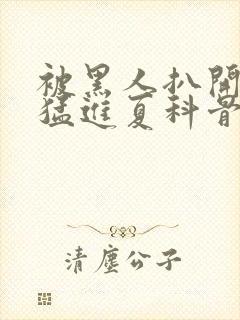 被黑人扒開
猛進夏科骨
清塵公子